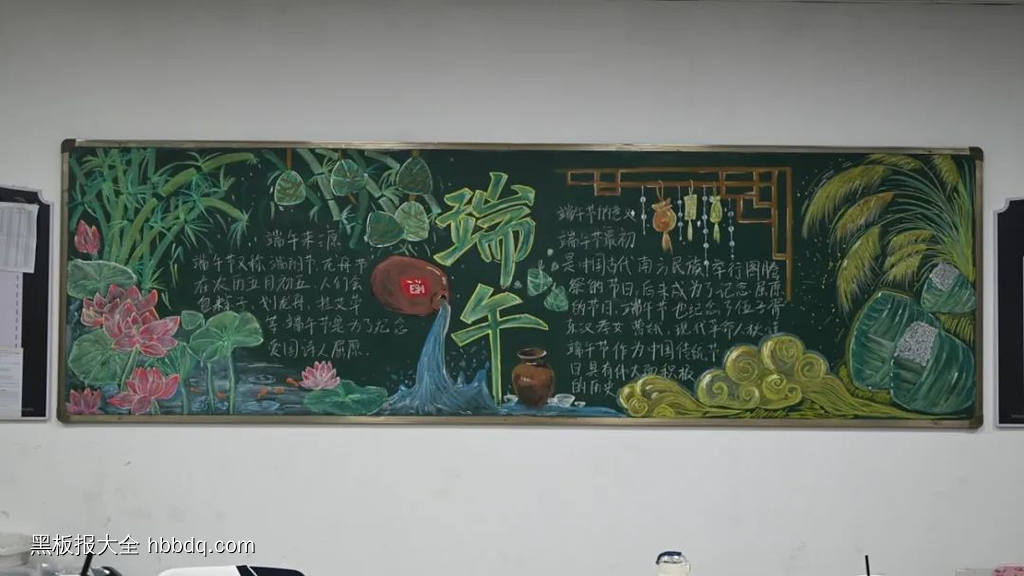 端午来源
端午节又称端阳节、龙舟节
在农历五月初五,人们会
包粽子、划龙舟、挂艾草
等,端午节是为了纪念
爱国诗人屈原.
端
午
酒
端午节的意义
端午节最初
是中国古代南方民族举行图腾
祭的节日,后来成为了记念屈原
的节日,端午节也纪念了伍子胥
东汉孝女
端午节作为中国传统节
日具有伟大而积极
的历史
黑板报大全 hbbdq.com